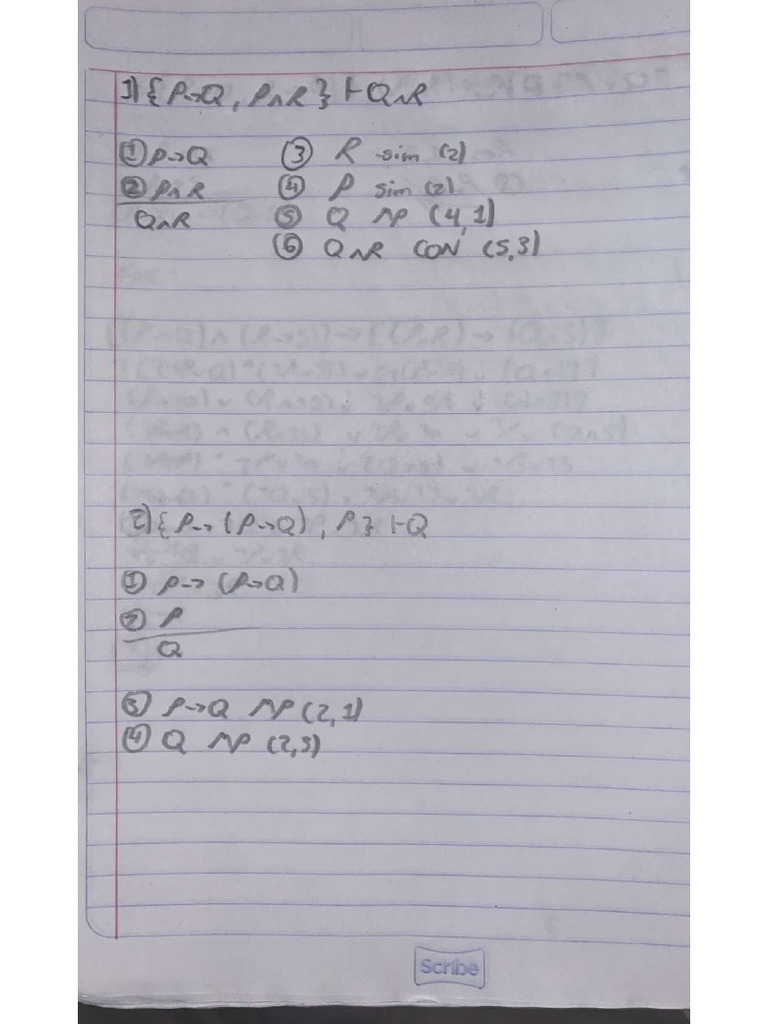 1) { P→Q, P∧R } ⊢ Q∧R
① P→Q
② P∧R
Q∧R
③ R sim (2)
④ P sim (2)
⑤ Q MP (4,1)
⑥ Q∧R CON (5,3)
2) { P→(P→Q), P } ⊢ Q
① P→(P→Q)
② P
Q
③ P→Q MP (2,1)
④ Q MP (2,3)
Scribe